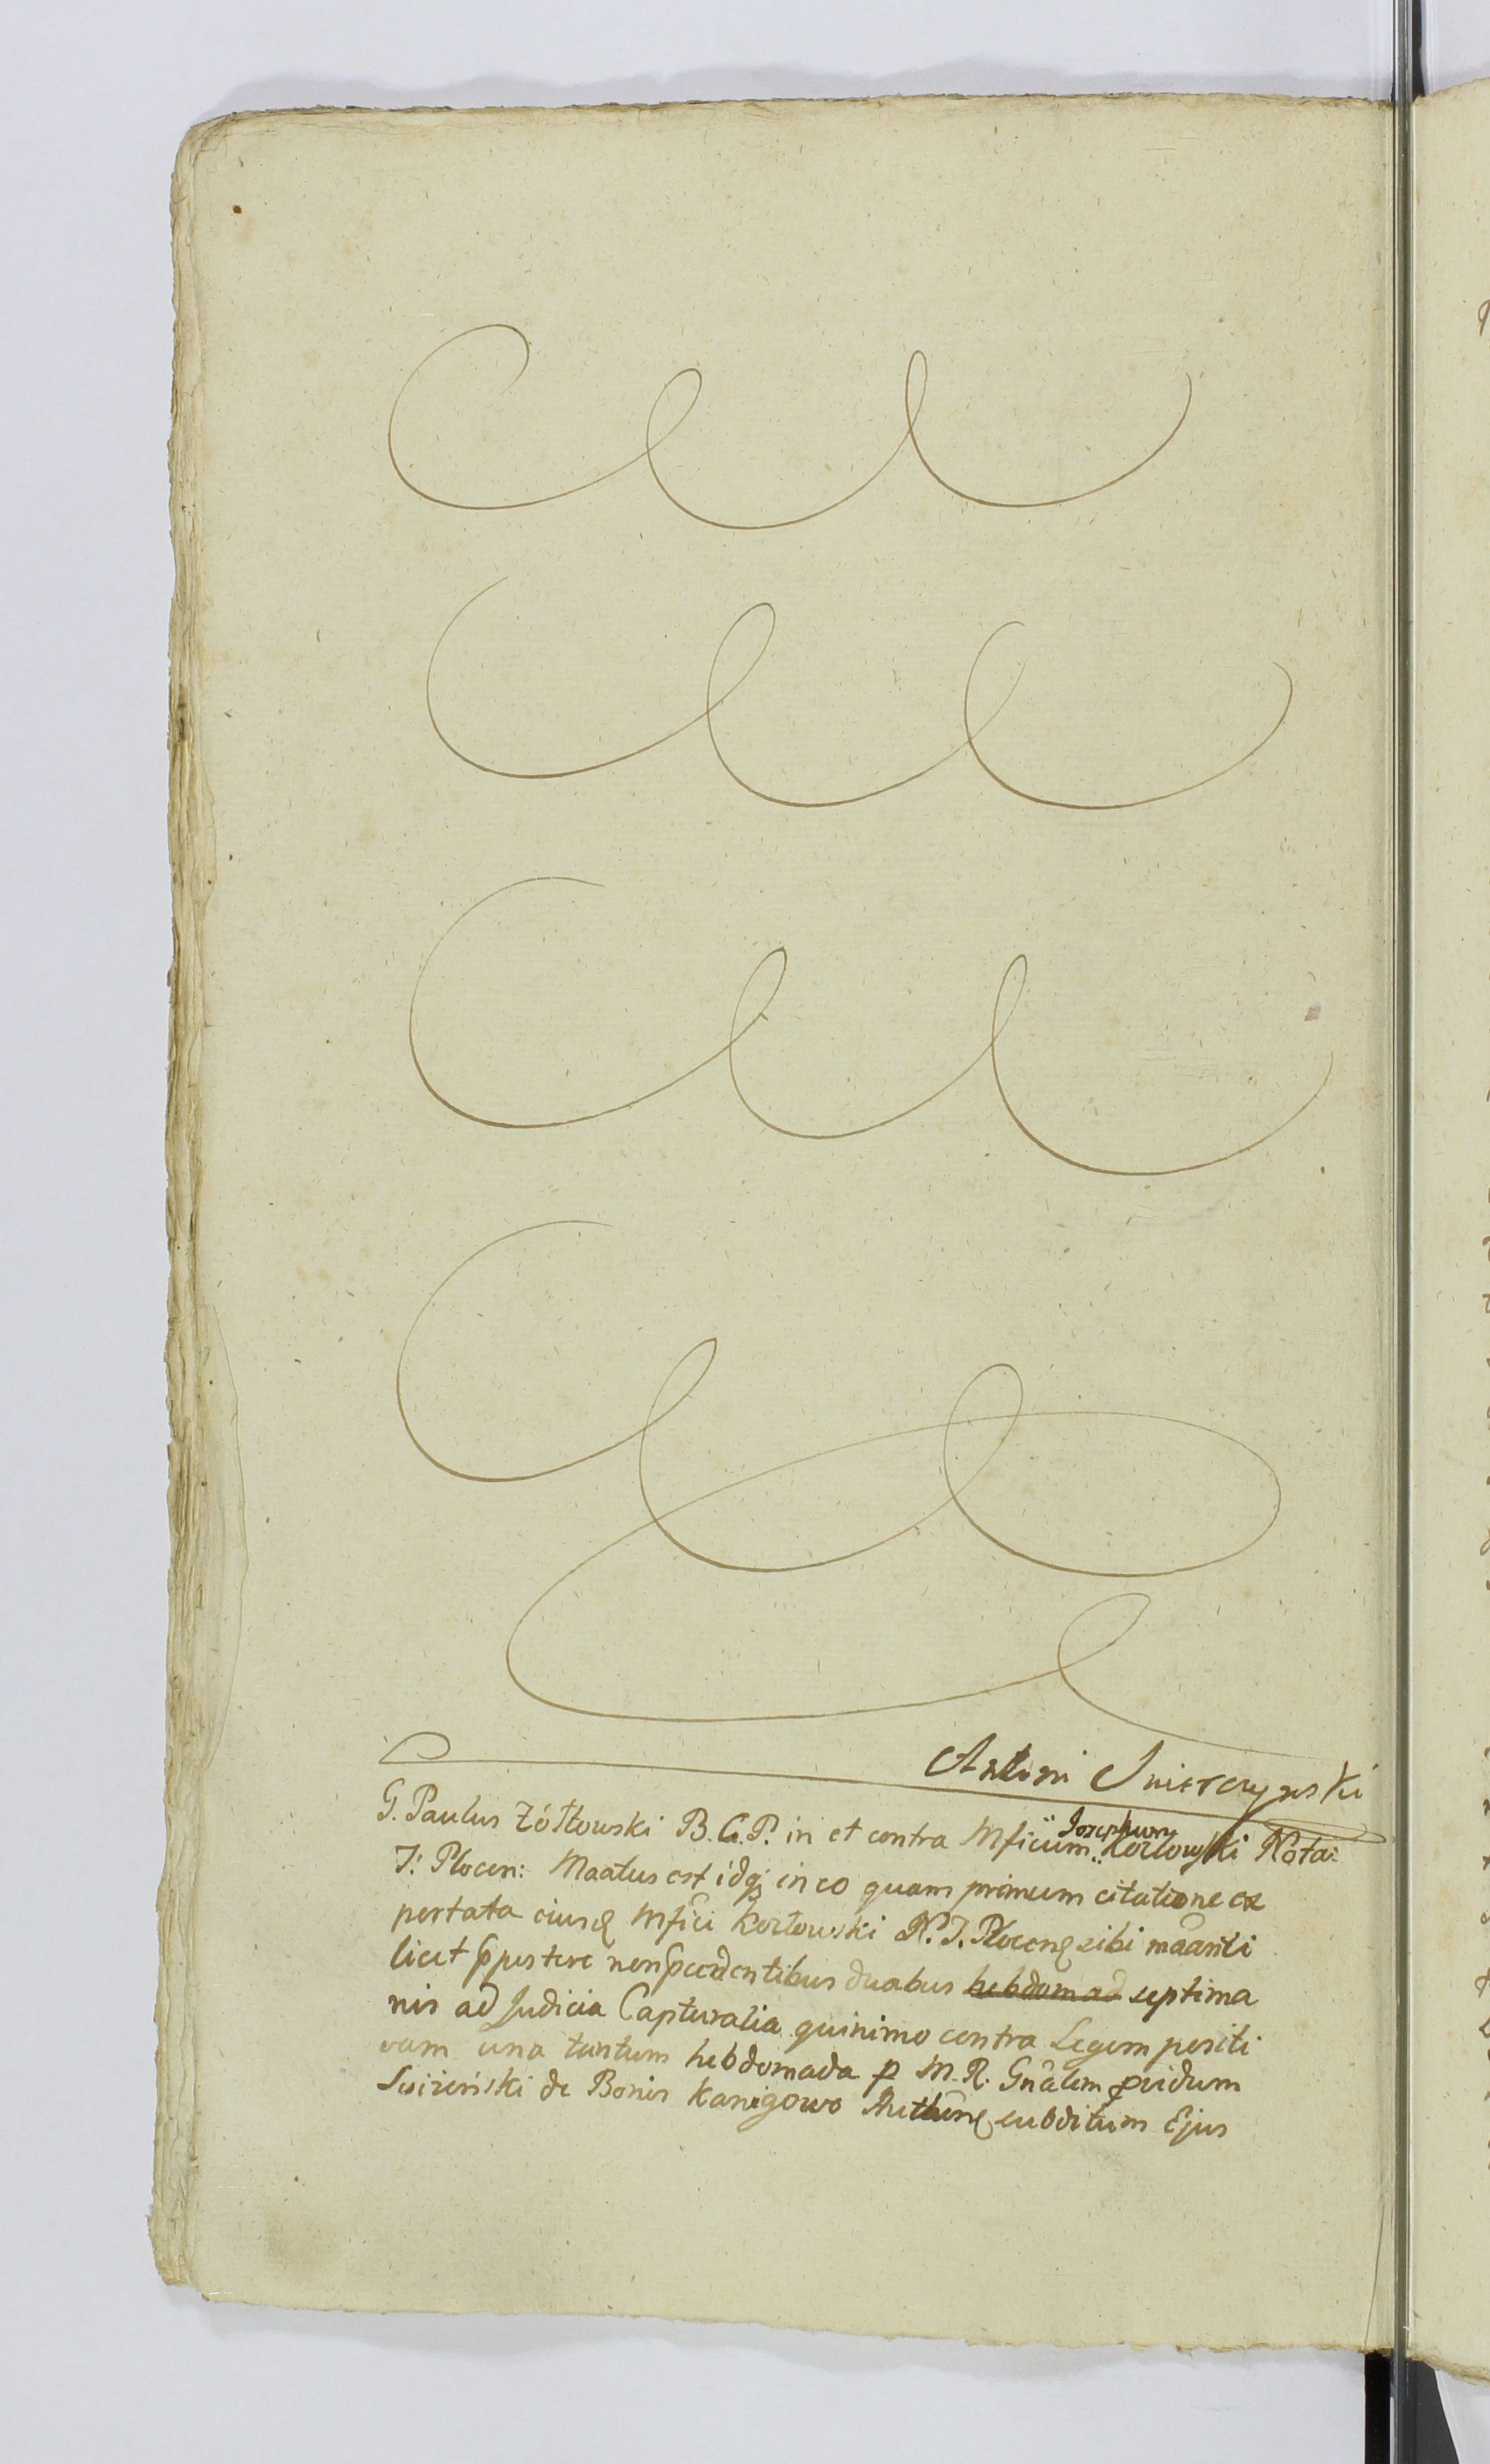 Antoni
G. Paulus Żółtowski B. G. P. in et contra Mficum Josephum Kozłowski Nota:
T: Plocen: Maatus est idq; in eo quam primum citatione ex
portata eiusd Mfici Kozłowski N. T. Plocens sibi maanti
licet ppostere non pcedentibus duabus hebdomad septima
nis ad Judicia Capturalia quinimo contra Legem positi
vam una tantum hebdomada p M. R. Gnalem pvidum
de Bonis Kanigowo subditum Ejus